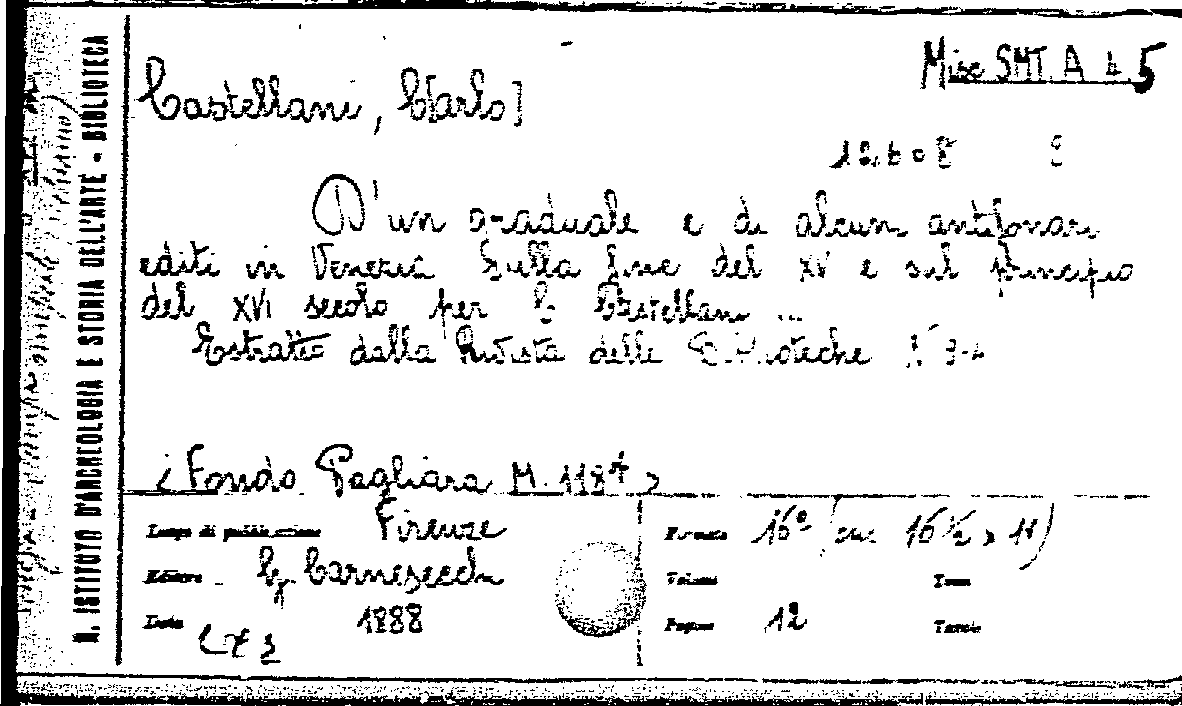 R. ISTITUTO D'ARCHEOLOGIA E STORIA DELL'ARTE - BIBLIOTECA
Misc SMT A 45
Castellani, C[arlo]
D'un graduale e di alcuni antifonari
editi in Venezia sulla fine del XV e sul principio
del XVI secolo per C Castellani ...
Estratto dalla Rivista delle Biblioteche N 3-4
(Fondo Pagliara M. 1184)
Luogo di pubblicazione Firenze
Editore G. Carnesecchi
Data 1888
Formato 16° (cm 16 1/2 x 11)
Volumi Tomi
Pagine 12 Tavole